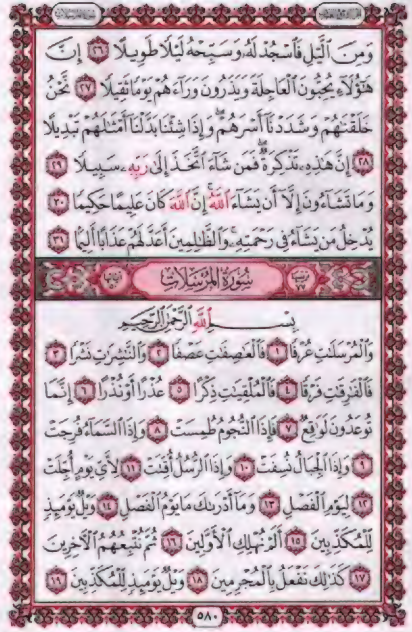 وَمِنَ ٱلَّيْلِ فَٱسْجُدْ لَهُۥ وَسَبِّحْهُ لَيْلًا طَوِيلًا ٢٦ إِنَّ
هَٰٓؤُلَآءِ يُحِبُّونَ ٱلْعَاجِلَةَ وَيَذَرُونَ وَرَآءَهُمْ يَوْمًا ثَقِيلًا ٢٧ نَّحْنُ
خَلَقْنَٰهُمْ وَشَدَدْنَآ أَسْرَهُمْ ۖ وَإِذَا شِئْنَا بَدَّلْنَآ أَمْثَٰلَهُمْ تَبْدِيلًا
٢٨ إِنَّ هَٰذِهِۦ تَذْكِرَةٌ ۖ فَمَن شَآءَ ٱتَّخَذَ إِلَىٰ رَبِّهِۦ سَبِيلًا ٢٩
وَمَا تَشَآءُونَ إِلَّآ أَن يَشَآءَ ٱللَّهُ ۚ إِنَّ ٱللَّهَ كَانَ عَلِيمًا حَكِيمًا ٣٠
يُدْخِلُ مَن يَشَآءُ فِى رَحْمَتِهِۦ ۚ وَٱلظَّٰلِمِينَ أَعَدَّ لَهُمْ عَذَابًا أَلِيمًۢا ٣١
سُورَةُ المُرْسَلَات
بِسْمِ ٱللَّهِ ٱلرَّحْمَٰنِ ٱلرَّحِيمِ
وَٱلْمُرْسَلَٰتِ عُرْفًا ١ فَٱلْعَٰصِفَٰتِ عَصْفًا ٢ وَٱلنَّٰشِرَٰتِ نَشْرًا ٣
فَٱلْفَٰرِقَٰتِ فَرْقًا ٤ فَٱلْمُلْقِيَٰتِ ذِكْرًا ٥ عُذْرًا أَوْ نُذْرًا ٦ إِنَّمَا
تُوعَدُونَ لَوَٰقِعٌ ٧ فَإِذَا ٱلنُّجُومُ طُمِسَتْ ٨ وَإِذَا ٱلسَّمَآءُ فُرِجَتْ
٩ وَإِذَا ٱلْجِبَالُ نُسِفَتْ ١٠ وَإِذَا ٱلرُّسُلُ أُقِّتَتْ ١١ لِأَىِّ يَوْمٍ أُجِّلَتْ
١٢ لِيَوْمِ ٱلْفَصْلِ ١٣ وَمَآ أَدْرَىٰكَ مَا يَوْمُ ٱلْفَصْلِ ١٤ وَيْلٌ يَوْمَئِذٍ
لِّلْمُكَذِّبِينَ ١٥ أَلَمْ نُهْلِكِ ٱلْأَوَّلِينَ ١٦ ثُمَّ نُتْبِعُهُمُ ٱلْءَاخِرِينَ
١٧ كَذَٰلِكَ نَفْعَلُ بِٱلْمُجْرِمِينَ ١٨ وَيْلٌ يَوْمَئِذٍ لِّلْمُكَذِّبِينَ ١٩
٥٨٠